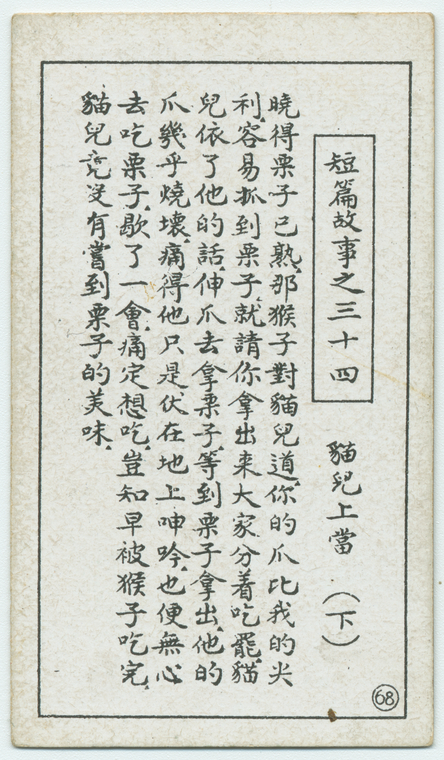 短篇故事之三十四
貓兒上當（下）
曉得栗子已熟、那猴子對貓兒道、你的爪比我的尖
利、容易抓到栗子、就請你拿出来大家分着吃罷、貓
兒依了他的話、伸爪去拿栗子、等到栗子拿出、他的
爪幾乎燒壞、痛得他只是伏在地上呻吟、也便無心
去吃栗子、歇了一會、痛定想吃、豈知早被猴子吃完、
貓兒竟没有嘗到栗子的美味、
68